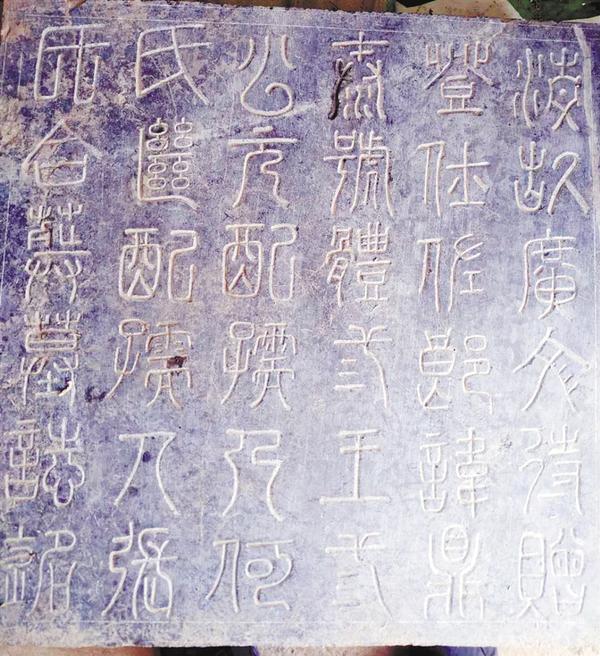 故廣待贈
登仕佐郎諱鼎
號體王
公元配孺人何
氏繼配孺人張
氏合葬墓誌銘